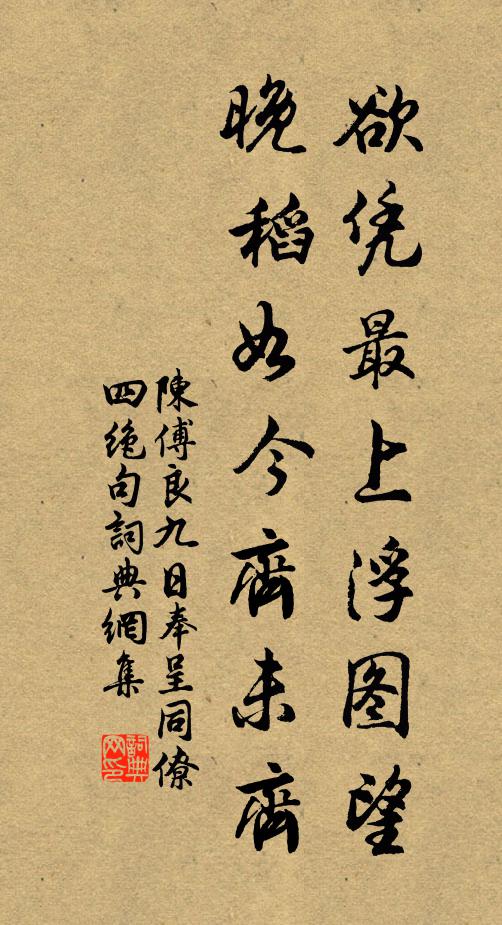 欲凭最上浮图望
晚稻如今齊未齊
陳傅良九日奉呈同僚
四绝句詞典網集
詞典网印